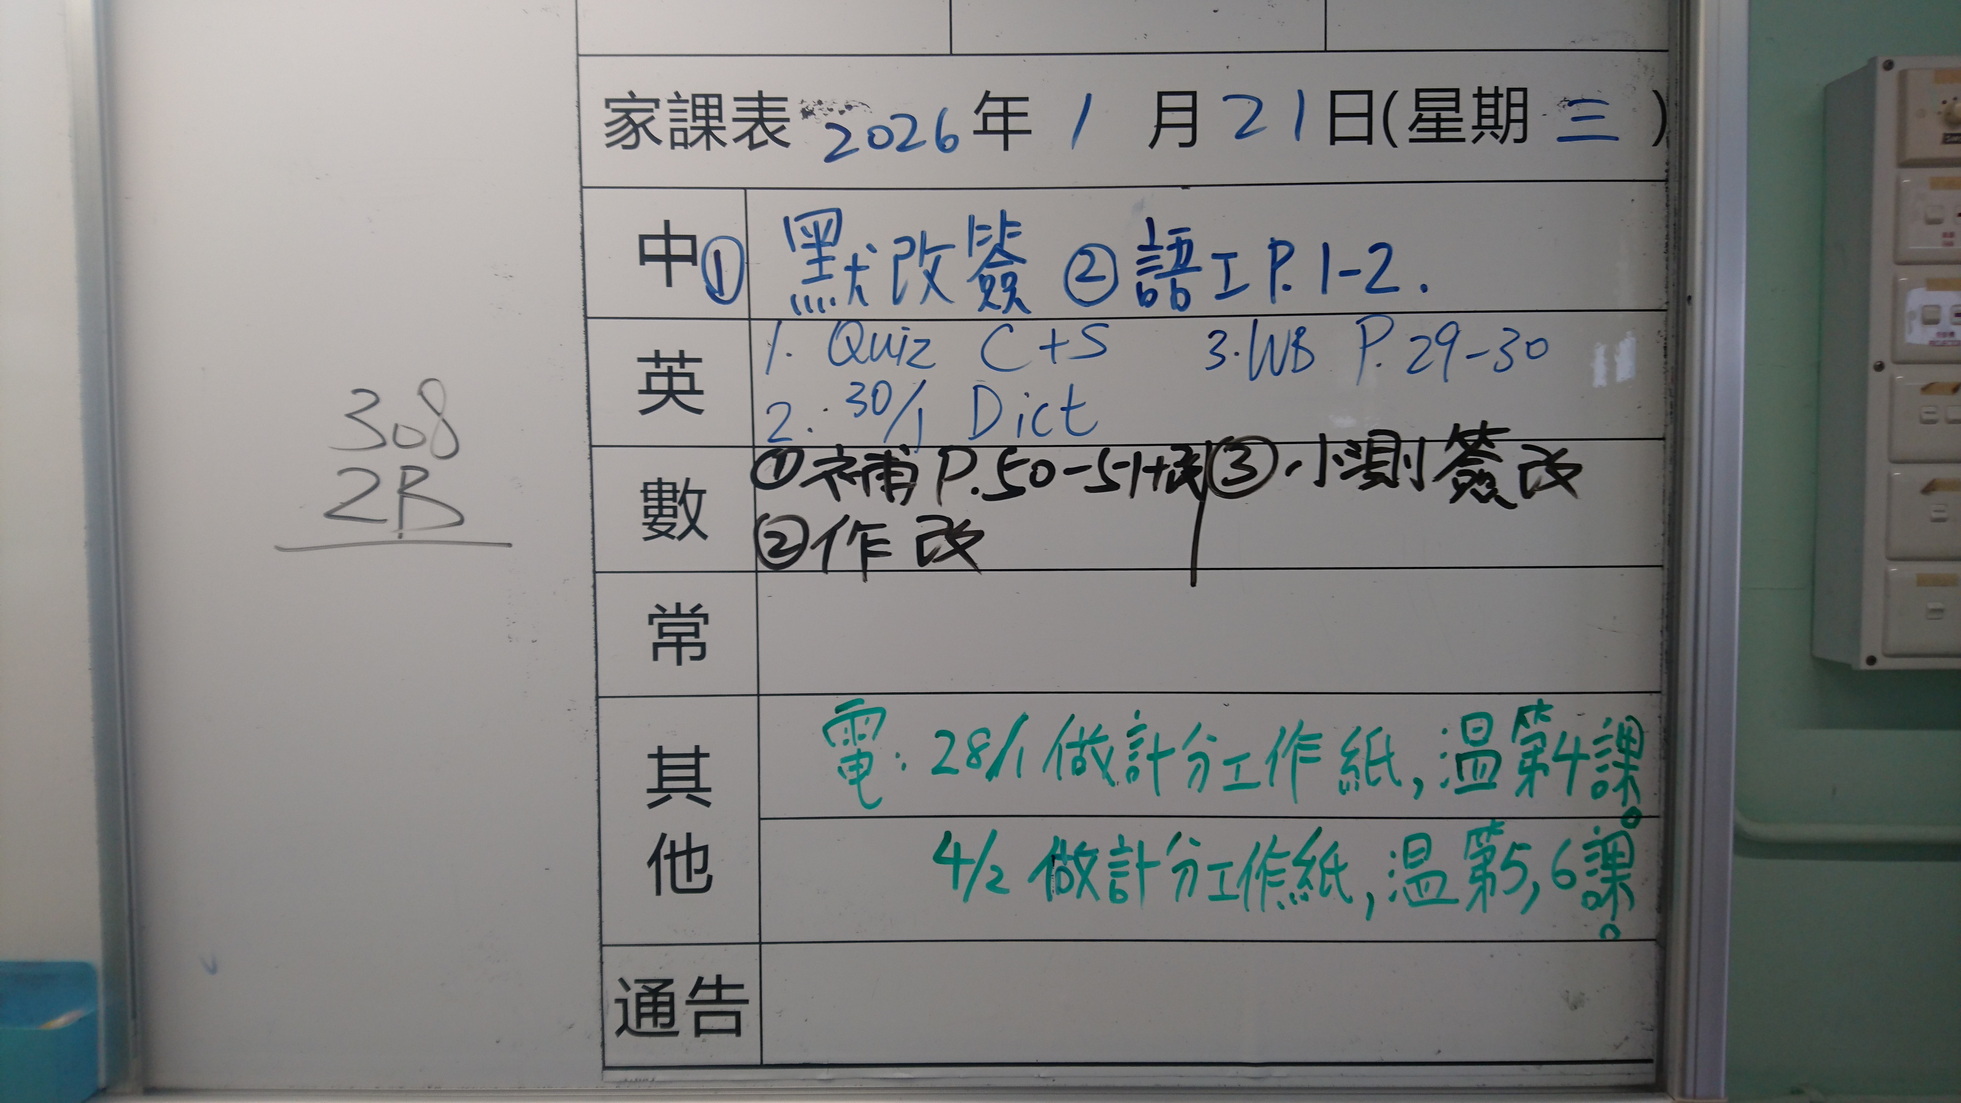 家課表 2026年1月21日(星期三)
中 ① 默改簽 ② 語工P.1-2.
英 1. Quiz C+S 3. WB P.29-30
2. 30/1 Dict
數 ①補P.50-51+改 ③小測簽改
②作改
常
其他 電: 28/1 做計分工作紙,溫第4課。
4/2 做計分工作紙,溫第5,6課。
通告
308
2B